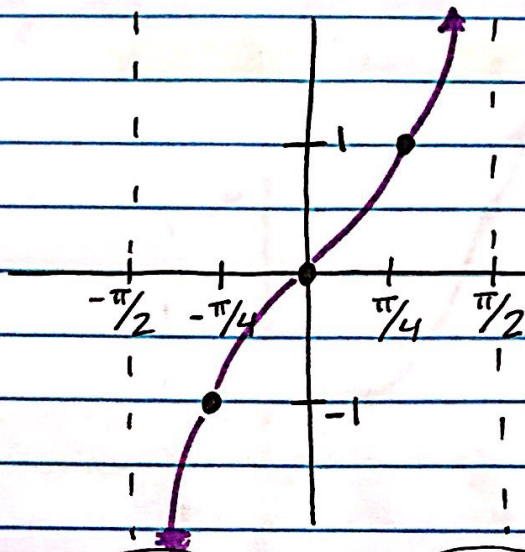 1
-π/2 -π/4 π/4 π/2
-1